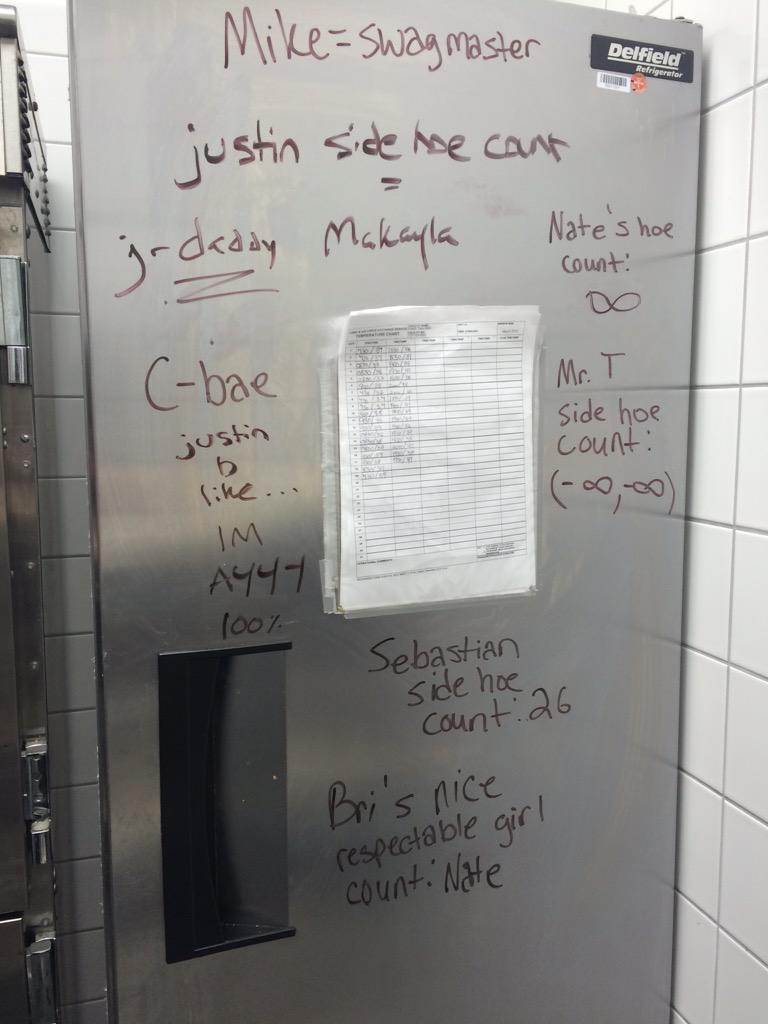 Mike = swagmaster
Delfield
Refrigerator
justin side hoe count
=
j-daddy Makayla
Nate's hoe
count:
∞
C-bae
justin
b
like...
IM
AYYY
100%
TEMPERATURE CHART
Mr. T
side hoe
count:
(-∞,-∞)
Sebastian
side hoe
count: 26
Bri's nice
respectable girl
count: Nate